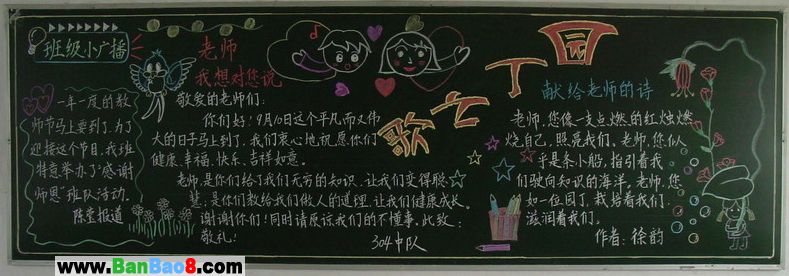 班级小广播
一年一度的教
师节马上要到了,为了
迎接这个节日,我班
特意举办了“感谢
师恩”班队活动.
陈莹报道
老师
我想对您说
敬爱的老师们:
你们好!9月10日这个平凡而又伟
大的日子马上到了,我们衷心地祝愿你们
健康.幸福.快乐.吉祥如意.
老师,是你们给了我们无穷的知识,让我们变得聪
慧;是你们教给我们做人的道理,让我们健康成长。
谢谢你们!同时请原谅我们的不懂事.此致:
敬礼!
304中队
歌亡丁园
献给老师的诗
老师,您像一支点燃的红烛燃
烧自己,照亮我们。老师,您似
乎是条小船,指引着我
们驶向知识的海洋。老师,您
如一位园丁,栽培着我们,
滋润着我们。
作者:徐韵
www.BanBao8.com